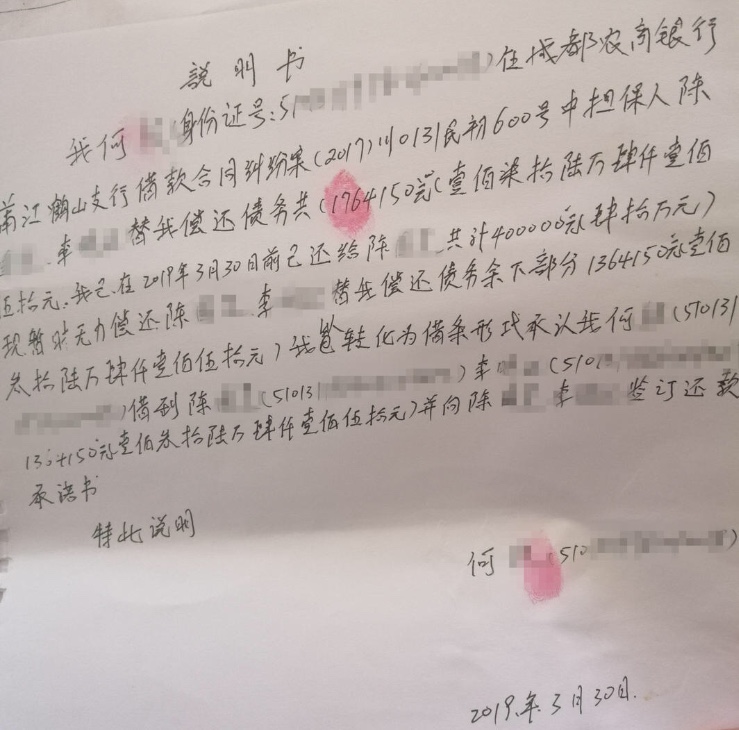 説明书
我何 身份证号:51 )在成都农商银行
蒲江鹤山支行借款合同纠纷案(2017)川0131民初600号中担保人陈
李 替我偿还债务共(1764150元(壹佰柒拾陆万肆仟壹佰
伍拾元.我已在2019年3月30日前已还给陈 共计400000元肆拾万元)
现暂时无力偿还陈 李 替我偿还债务余下部分1364150元壹佰
叁拾陆万肆仟壹佰伍拾元)我 转化为借条形式承认我何 (510131
)借到陈 (51013 )李 (510
1364150元壹佰叁拾陆万肆仟壹佰伍拾元)并向陈 李 签订还款
承诺书
特此说明
何 (510 )
2019年3月30日.